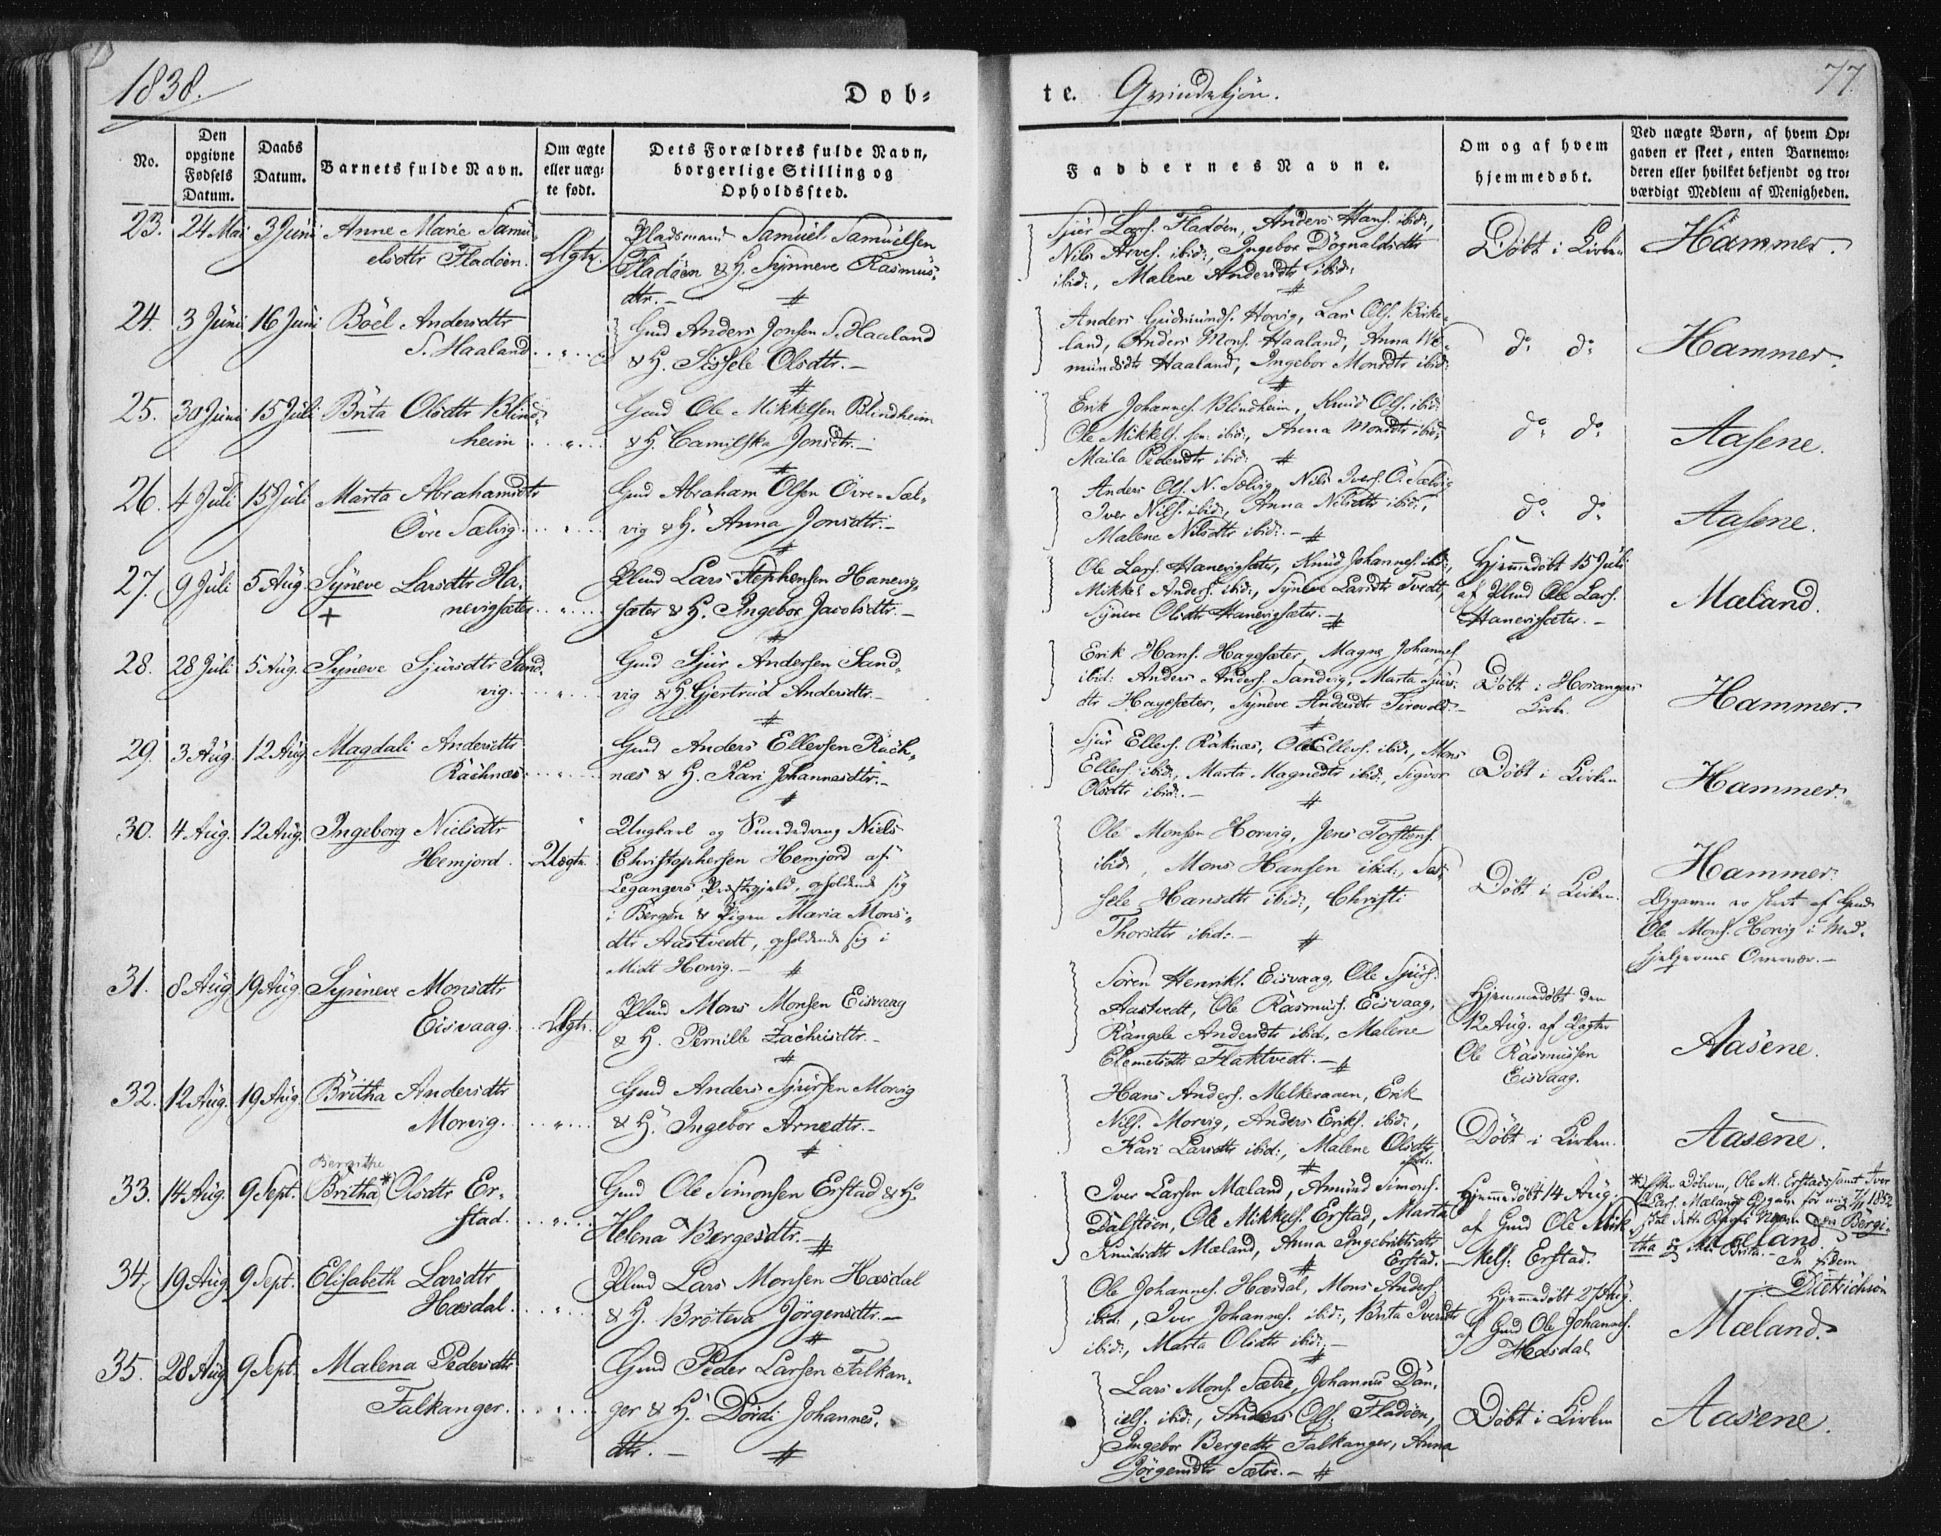 1838.
Døb-
te. Qvindekjøn.
77.
No.
Den opgivne Fødsels Datum.
Daabs Datum.
Barnets fulde Navn.
Om ægte eller uægte født.
Dets Forældres fulde Navn, borgerlige Stilling og Opholdssted.
Faddernes Navne.
Om og af hvem hjemmedøbt.
Ved uægte Børn, af hvem Opgaven er skeet, enten Barnemoderen eller hvilket bekjendt og troværdigt Medlem af Menigheden.
23. 24 Mai 3 Juni Anne Marie Samu-
elsdtr Fladöen. Ægte.
Pladsmand Samuel Samuelsen
Fladöen & H. Synneve Rasmus-
dtr. -
Sjur Lars. Fladöen, Anders Hans. ibid:,
Nils Arves. ibid:, Ingebor Dögnaldsdtr
ibid:, Malene Andersdtr ibid:
Döbt i Kirken
Hammer.
24. 3 Juni 16 Juni Böel Andersdtr
S. Haaland
Gmd Anders Jonsen S. Haaland
& H. Sissele Olsdtr. -
Anders Gudmunds. Horvig, Lars Ols. Birke-
land, Anders Mons. Haaland, Anna We-
mundsdtr Haaland, Ingebor Monsdtr ibid:
do. do.
Hammer.
25. 30 Juni 15 Juli Brita Olsdtr Blind-
heim
Gmd Ole Mikkelsen Blindheim
& H. Camilska Jonsdtr. -
Erik Johannes. Blindheim, Knud Ols. ibid:
Ole Mikkels. sen: ibid:, Anna Monsdtr ibid:,
Maila Pedersdtr ibid:
do. do.
Aasene.
26. 4 Juli 15 Juli Marta Abrahamsdtr
Övre Sælvig
Gmd Abraham Olsen Övre-Sæl-
vig & H. Anna Jonsdtr. -
Anders Ols. N. Sælvig, Nils Ivers. Ö. Sælvig
Iver Nils. ibid:, Anna Nilsdtr ibid:,
Malene Nilsdtr ibid: -
do. do.
Aasene.
27. 9 Juli 5 Aug. Syneve Larsdtr Ha-
nevigsæter
Plmd Lars Stephensen Hanevig-
sæter & H. Ingebor Jacobsdtr. -
Ole Lars. Hanevigsæter, Knud Johannes. ibid:,
Mikkel Anders. ibid:, Syneve Larsdtr Tvedt,
Syneve Olsdtr Hanevigsæter. -
Hjemmedöbt 15 Juli
af Plmd Ole Lars.
Hanevigsæter. -
Mæland.
28. 28 Juli 5 Aug. Syneve Sjursdtr Sand-
vig.
Gmd Sjur Andersen Sand-
vig & H. Gjertrud Andersdtr. -
Erik Hans. Hagesæter, Magne Johannes.
ibid: Anders Anders. Sandvig, Marta Sjurs-
dtr Hagesæter, Syneve Andersdtr
Döbt i Hosangers
Kirke.
Hammer.
29. 3 Aug. 12 Aug. Magdali Andersdtr
Rachnæs
Gmd Anders Ellevsen Rach-
næs & H. Kari Johannesdtr. -
Sjur Ellevs. Raknæs, Ole Ellevs. ibid:, Mons
Ellevs. ibid:, Marta Magnedtr ibid:, Sigvor
Olsdtr ibid: -
Döbt i Kirken
Hammer.
30. 4 Aug. 12 Aug. Ingeborg Nielsdtr
Hemjord. Uægte.
Ungkarl og Niels
Christophersen Hemjord af
Legangers Præstegjeld, opholdende sig
i Bergen & Pigen Maria Mons-
dtr Aastvedt, opholdende sig i
Midt Horvig. -
Ole Monsen Horvig, Jens Torstens.
ibid:, Mons Hansen ibid:, Sis-
sele Hansdtr ibid:, Christi
Thorsdtr ibid: -
Döbt i Kirken.
Hammer.
Opgaven er skeet af Gmd
Ole Mons. Horvig i Med-
hjelpernes Overvær. -
31. 8 Aug 19 Aug. Synneve Monsdtr
Eisvaag. Ægte.
Plmd Mons Monsen Eisvaag
& H. Pernille Zachrisdtr. -
Sören Henriks. Eisvaag, Ole Sjurs.
Aastvedt, Ole Rasmus. Eisvaag,
Rangele Andersdtr ibid:, Malene
Clemetsdtr Flaktvedt. -
Hjemmedöbt den
12 Aug. af
Ole Rasmussen
Eisvaag.
Aasene.
32. 12 Aug. 19 Aug. Britha Andersdtr
Morvig.
Gmd Anders Sjursen Morvig
& H. Ingebor Arnedtr. -
Hans Anders. Melkeraaen, Erik
Nils. Morvig, Anders Eriks. ibid:,
Kari Larsdtr ibid:, Malene Olsdtr
ibid:.
Döbt i Kirken.
Aasene.
Bergithe
33. 14 Aug. 9 Sept. Britha* Olsdtr Er-
stad.
Gmd Ole Simonsen Erstad & H.
Helena Bergesdtr. -
Iver Larsen Mæland, Amund Simons.
Dalstöen, Ole Mikkels. Erstad, Marta
Knudsdtr Mæland, Anna Ingebritsdtr
Erstad. -
Hjemmedöbt 14 Aug.
af Gmd Ole Mik-
kels. Erstad.
* Ole M. Erstads samt Iver
Lars. Mælands Opgave for mig 1852
skal dette Navn være Bergi-
tha og ikke Britha. -
Mæland
In fidem
Dietrichson
34. 19 Aug 9 Sept. Elisabeth Larsdtr
Hæsdal.
Plmd Lars Monsen Hæsdal
& H. Bröteva Jörgensdtr. -
Ole Johannes. Hæsdal, Mons Anders.
ibid:, Iver Johannes. ibid:, Brita Iversdtr
ibid:, Marta Olsdtr ibid: -
Hjemmedöbt 27 Aug.
af Gmd Ole Johannes.
Hæsdal
Mæland
35. 28 Aug 9 Sept. Malena Pedersdtr
Falkanger.
Gmd Peder Larsen Falkan-
ger & H. Dordi Johannes-
dtr. -
Lars Mons. Sætre, Johannes Dan-
iels. ibid:, Anders Ols. Fladöen,
Ingebor Bergedtr Falkanger, Anna
Jörgensdtr Sætre. -
Döbt i Kirken
Aasene.